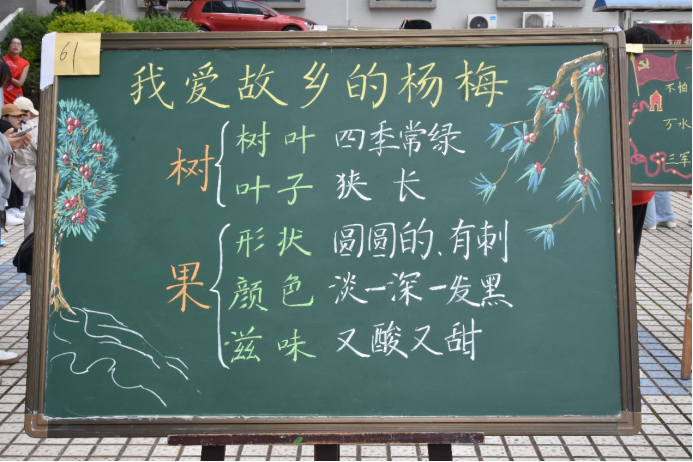 61
我爱故乡的杨梅
树
树叶 四季常绿
叶子 狭长
果
形状 圆圆的、有刺
颜色 淡—深—发黑
滋味 又酸又甜
不怕
万水
三军